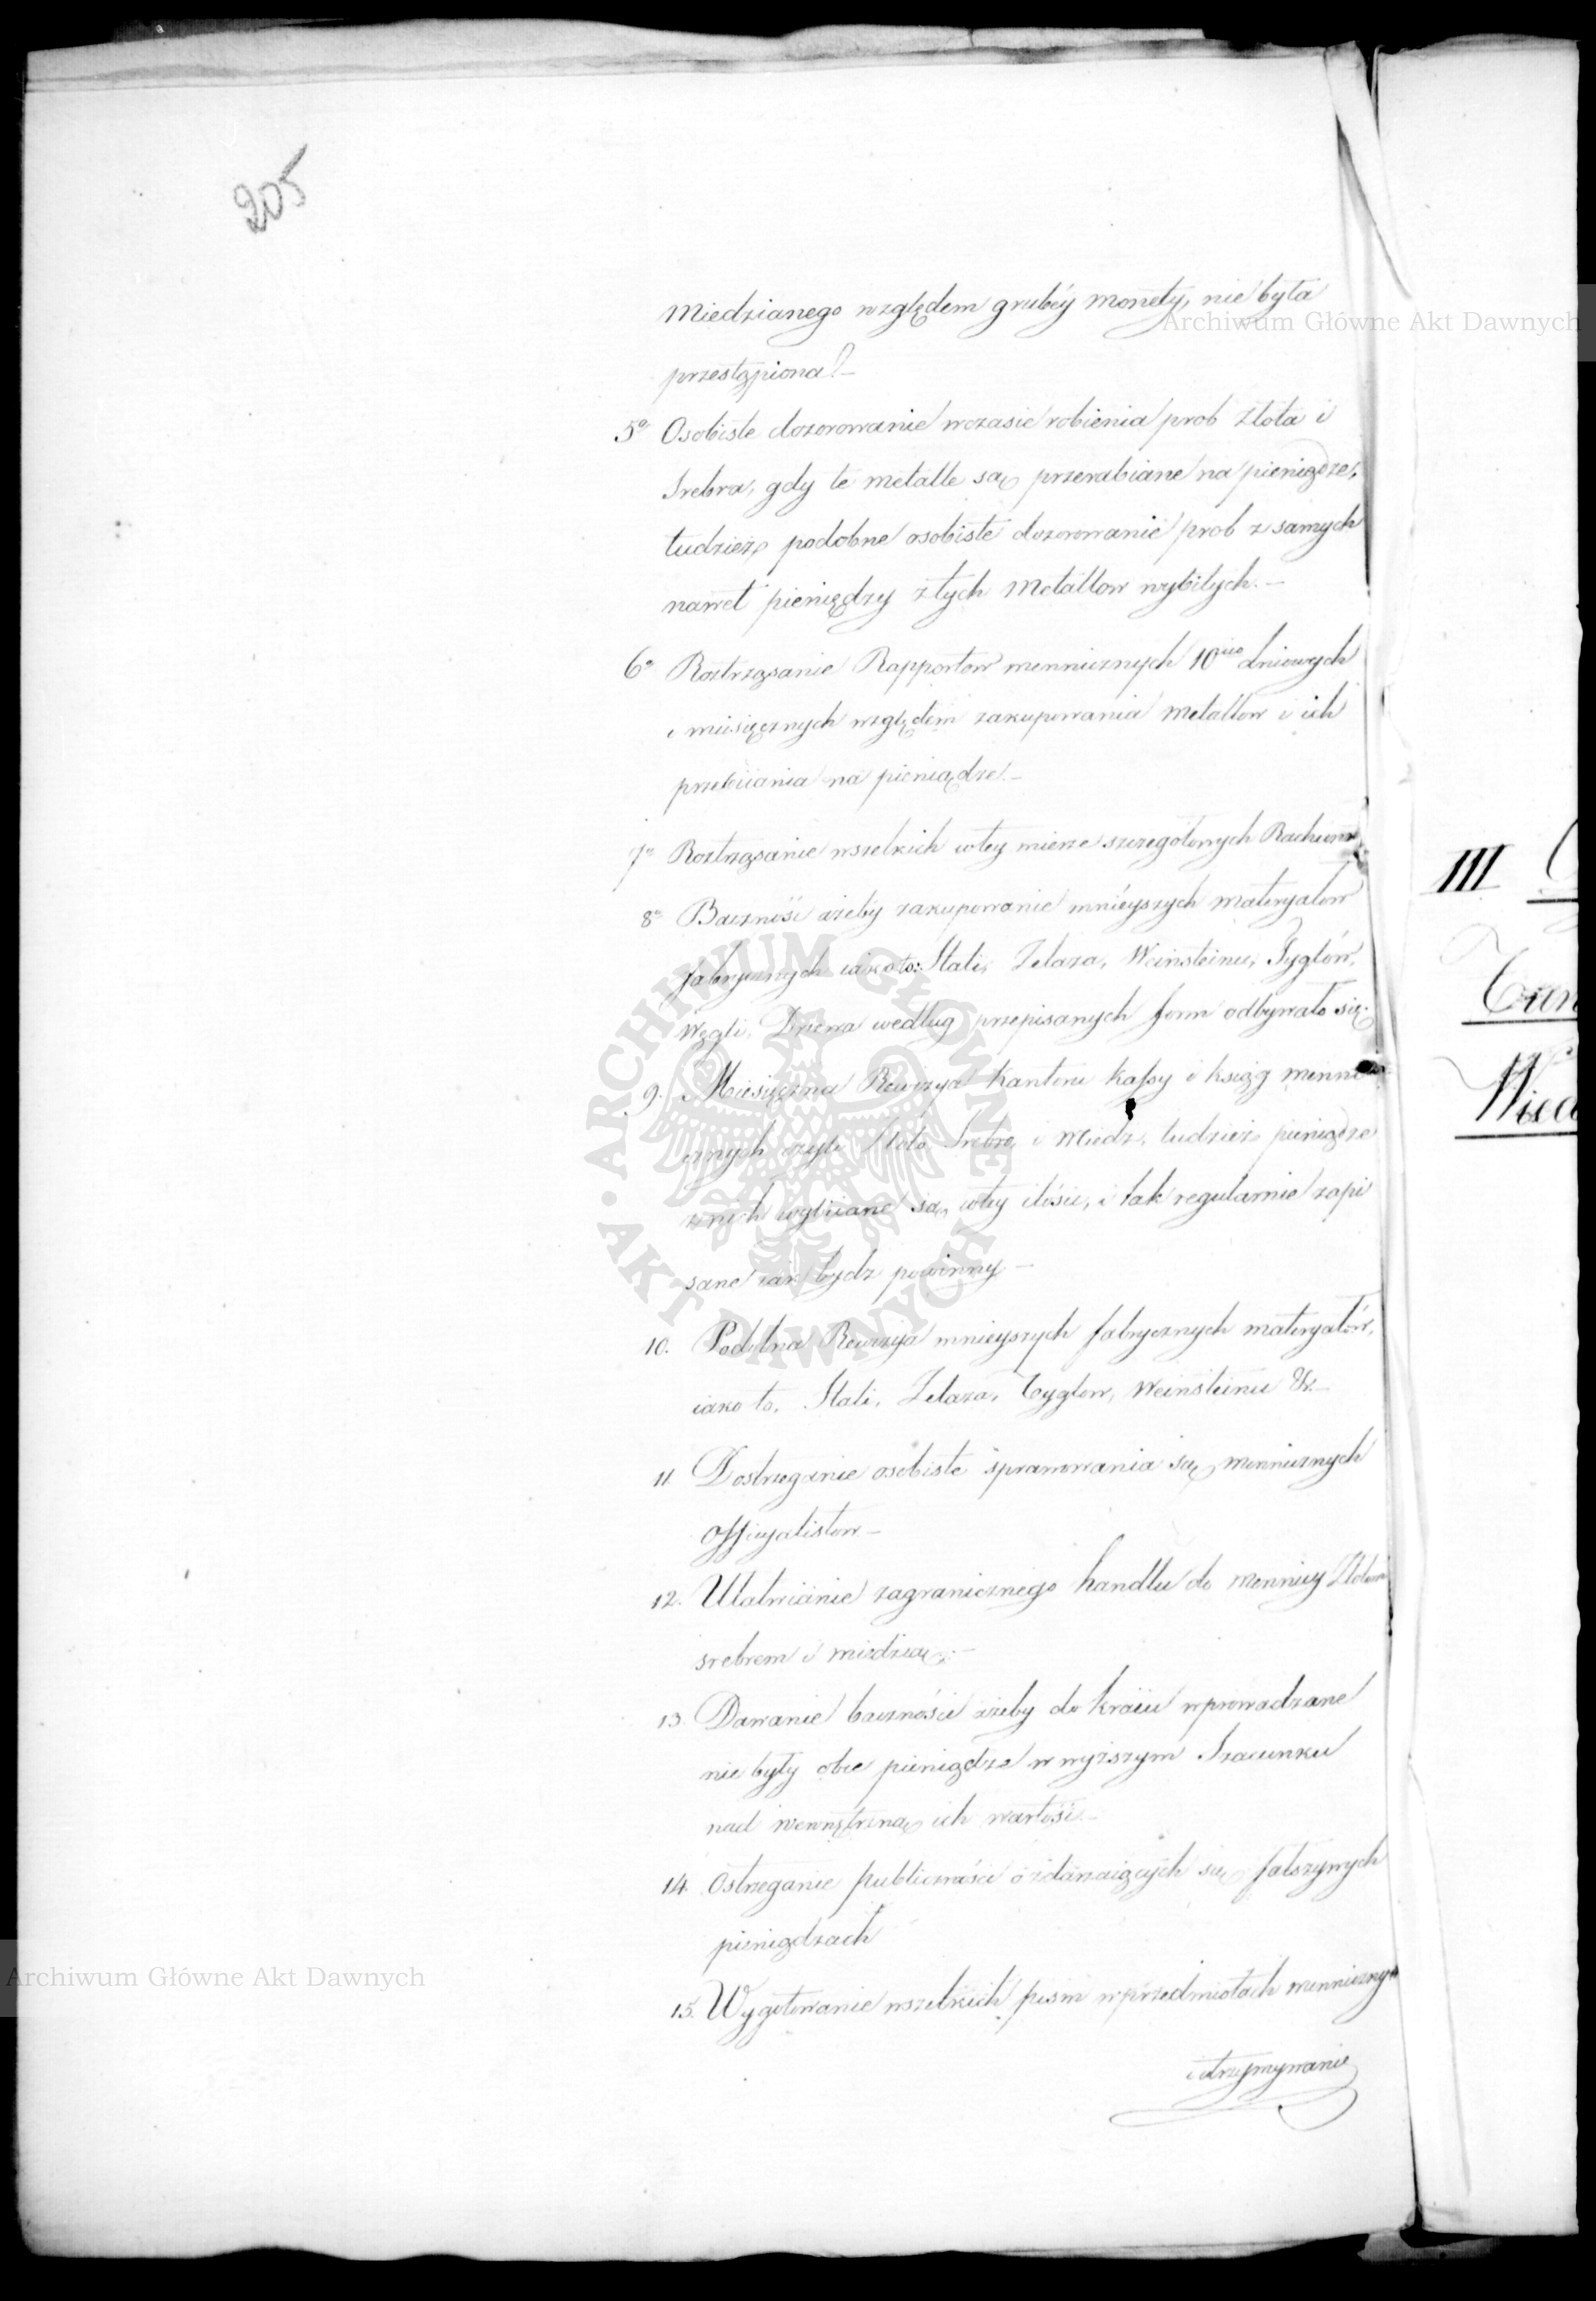 205
Miedzianego względem grubéy monety, nie była
przestąpiona.—
5o Osobiste dozorowanie wczasie robienia prob Złota i
Srebra, gdy te metalle są przerabiane na pieniądze,
tudzież podobne osobiste dozorowanie prob z samych
nawet pieniędzy z tych Metallow wybitych.—
6o Roztrząsanie Rapportow mennicznych 10cio dniowych
i miesięcznych względem zakupowania Metallow i ich
przebiiania na pieniądze.—
7o Roztrząsanie wszelkich wtey mierze szczegółowych
8o Baczność ażeby zakupowanie mnieyszych materyałow
fabrycznych iako to: Stali, Żelaza, Weinsteinu, Tyglów,
Węgli, Drzewa według przepisanych form odbywało się.
9. Miesięczna Rewizya Kantoru kassy i ksiąg menni
cznych czyli Złoto Srebro, i Miedź, tudzież pieniądze
znich wybiiane są wtey ilości, i tak regularnie zapi
sane iak bydź powinny —
10. Podobna Rewizya mnieyszych fabrycznych materyałów,
iako to, Stali, Żelaza, Tyglow, Weinsteinu &c.—
11 Dostrzeganie osobiste sprawowania się mennicznych
Officyalistow —
12. Ułatwianie zagranicznego handlu do mennicy Złotem
srebrem i miedzią.—
13. Dawanie baczności ażeby do kraiu wprowadzane
nie były obce pieniądze w wyższym Szacunku
nad wewnętrzną ich wartość.—
14. Ostrzeganie Publiczności o zdarzaiących się fałszywych
pieniądzach
15. Wygotowanie wszelkich pism w przedmiotach menniczny
i utrzymywanie
III
Wied
Archiwum Główne Akt Dawnych
Archiwum Główne Akt Dawnych
ARCHIWUM GŁÓWNE AKT DAWNYCH